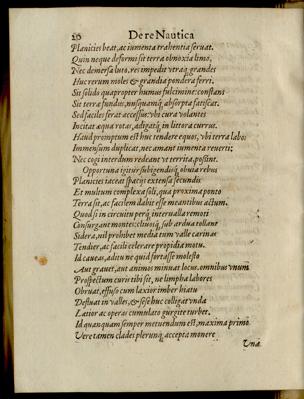 20 De re Nautica
Planicies beat, ac iumenta trahentia seruat.
Quin neque deformi sit terra obnoxia limo,
Nec demersa luto, res impedit vtraq; grandes
Huc rerum moles & grandia pondera ferri.
Sit solido quapropter humus fulcimine: constans
Sit terræ fundus, nusquamq; absorpta fatiscat.
Sed faciles ferat accessus: vbi cura volantes
Incitat aqua rotas, adigatq; in littora currus.
Haud promptum est huc tendere equos, vbi terra labos
Immensum duplicat, nec amant iumenta reuerti;
Nec cogi interdum redeant vt territa, possint.
Opportuna igitur subigendisq; obuia rebus
Planicies iaceat spacijs extensa secundis
Et multum complexa soli, qua proxima ponto
Terra sit, ac facilem dabit esse meantibus actum.
Quod si in circuitu perq; interualla remoti
Consurgant montes: cliuosq; sub ardua tollant
Sidera, nil prohibet media tum valle carinas
Tendier, ac facili celerare propidia motu.
Id caueas, aditu ne quid fortasse molesto
Aut grauet, aut animos minuat locus, omnibus vnum
Prospectum curæ tibi sit, ne limpha labores
Obruat, effuso cum laxior imber hiatu
Defluat in valles, & sese huc colligat vnda
Latior ac operas cumulato gurgite turbet.
Id quanquam semper metuendum est, maxima primo
Vere tamen clades plerunq; accepta monere
Vna